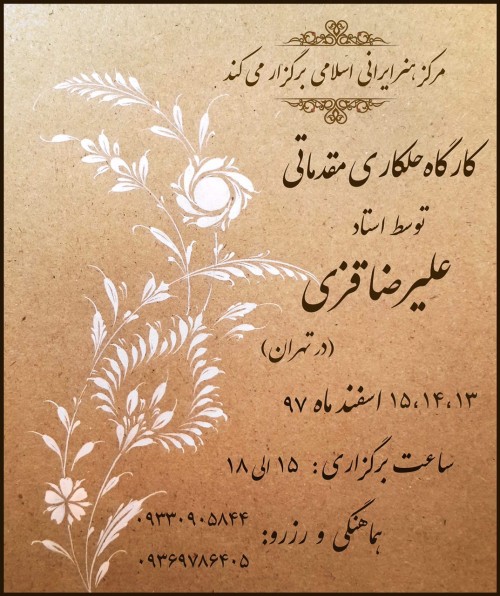 مرکز هنر ایرانی اسلامی برگزار می کند
کارگاه حلکاری مقدماتی
توسط استاد
علیرضا قزی
(در تهران)
۱۳، ۱۴، ۱۵ اسفند ماه ۹۷
ساعت برگزاری: ۱۵ الی ۱۸
هماهنگی و رزرو:
۰۹۳۳۰۹۰۵۸۴۴
۰۹۳۶۹۷۸۶۴۰۵